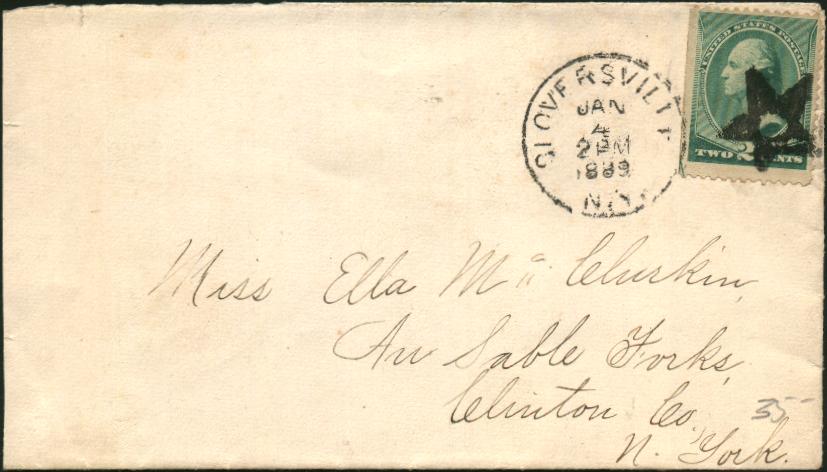 UNITED STATES POSTAGE
TWO 2 CENTS
GLOVERSVILLE
JAN
4
2 PM
1889
N.Y.
Miss Ella Mc Clurkin,
Au Sable Forks,
Clinton Co.
N. York.
35